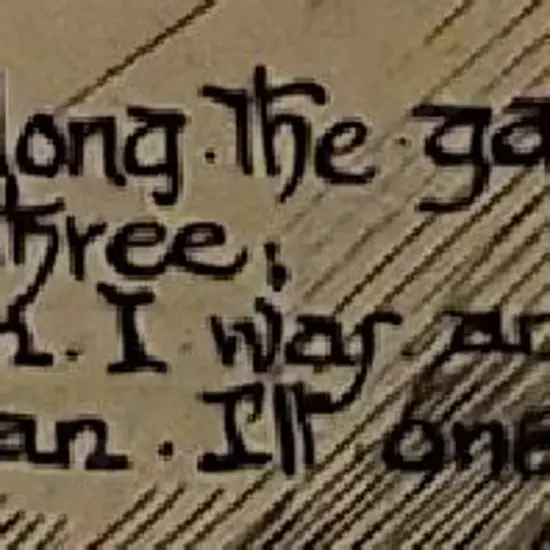 long · the · ga
three;
k · I was · an
an · Ill one